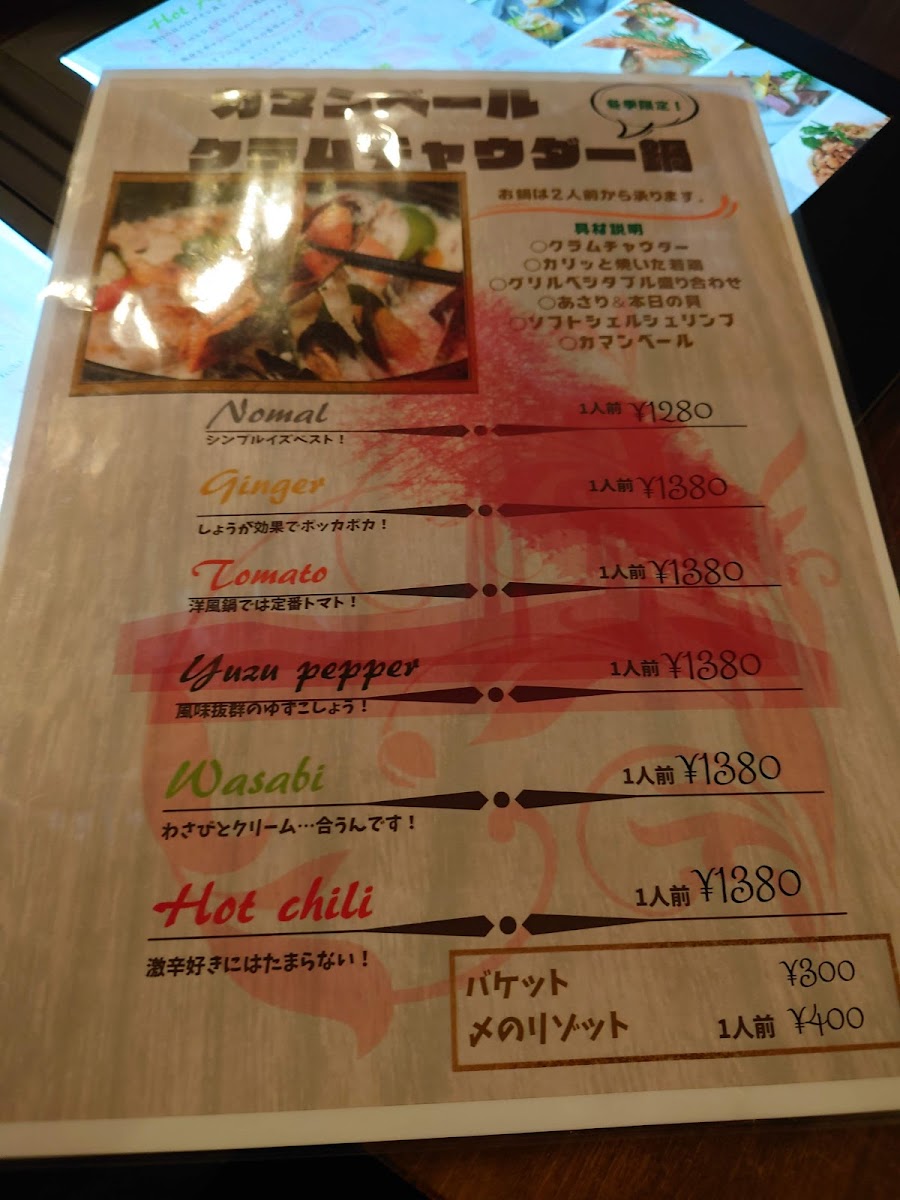 カマンベール
冬季限定！
クラムチャウダー鍋
お鍋は2人前から承ります。
具材説明
○クラムチャウダー
○カリッと焼いた若鶏
○グリルベジタブル盛り合わせ
○あさり&本日の貝
○ソフトシェルシュリンプ
○カマンベール
Nomal 1人前 ¥1280
シンプルイズベスト！
Ginger 1人前 ¥1380
しょうが効果でポッカポカ！
Tomato 1人前 ¥1380
洋風鍋では定番トマト！
Yuzu pepper 1人前 ¥1380
風味抜群のゆずこしょう！
Wasabi 1人前 ¥1380
わさびとクリーム…合うんです！
Hot chili 1人前 ¥1380
激辛好きにはたまらない！
バケット ¥300
〆のリゾット 1人前 ¥400